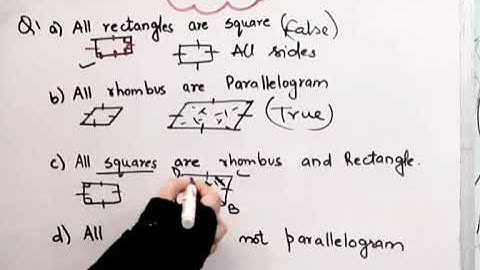 Q1 a) All rectangles are square (False)
All sides
b) All rhombus are Parallelogram
(True)
c) All squares are rhombus and Rectangle.
D C
B
d) All not parallelogram